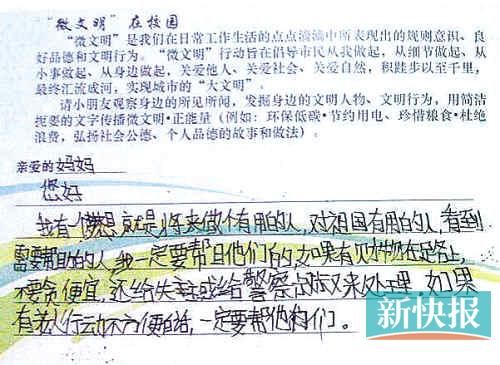 “微文明”在校园
“微文明”是我们在日常工作生活的点点滴滴中所表现出的规则意识、良
好品德和文明行为。“微文明”行动旨在倡导市民从我做起，从细节做起、从
小事做起、从身边做起，关爱他人、关爱社会、关爱自然，积跬步以至千里，
最终汇流成河，实现城市的“大文明”。
请小朋友观察身边的所见所闻，发掘身边的文明人物、文明行为，用简洁
扼要的文字传播微文明·正能量（例如：环保低碳·节约用电、珍惜粮食·杜绝
浪费，弘扬社会公德、个人品德的故事和做法）：
亲爱的妈妈
您好
我有个梦想就是将来做个有用的人，对祖国有用的人，看到
需要帮助的人，我一定要帮他们的，如果有财物在路上，
不要贪便宜，还给失主或给警察叔叔来处理，如果
有老人行动不方便的话，一定要帮他们。
新快报